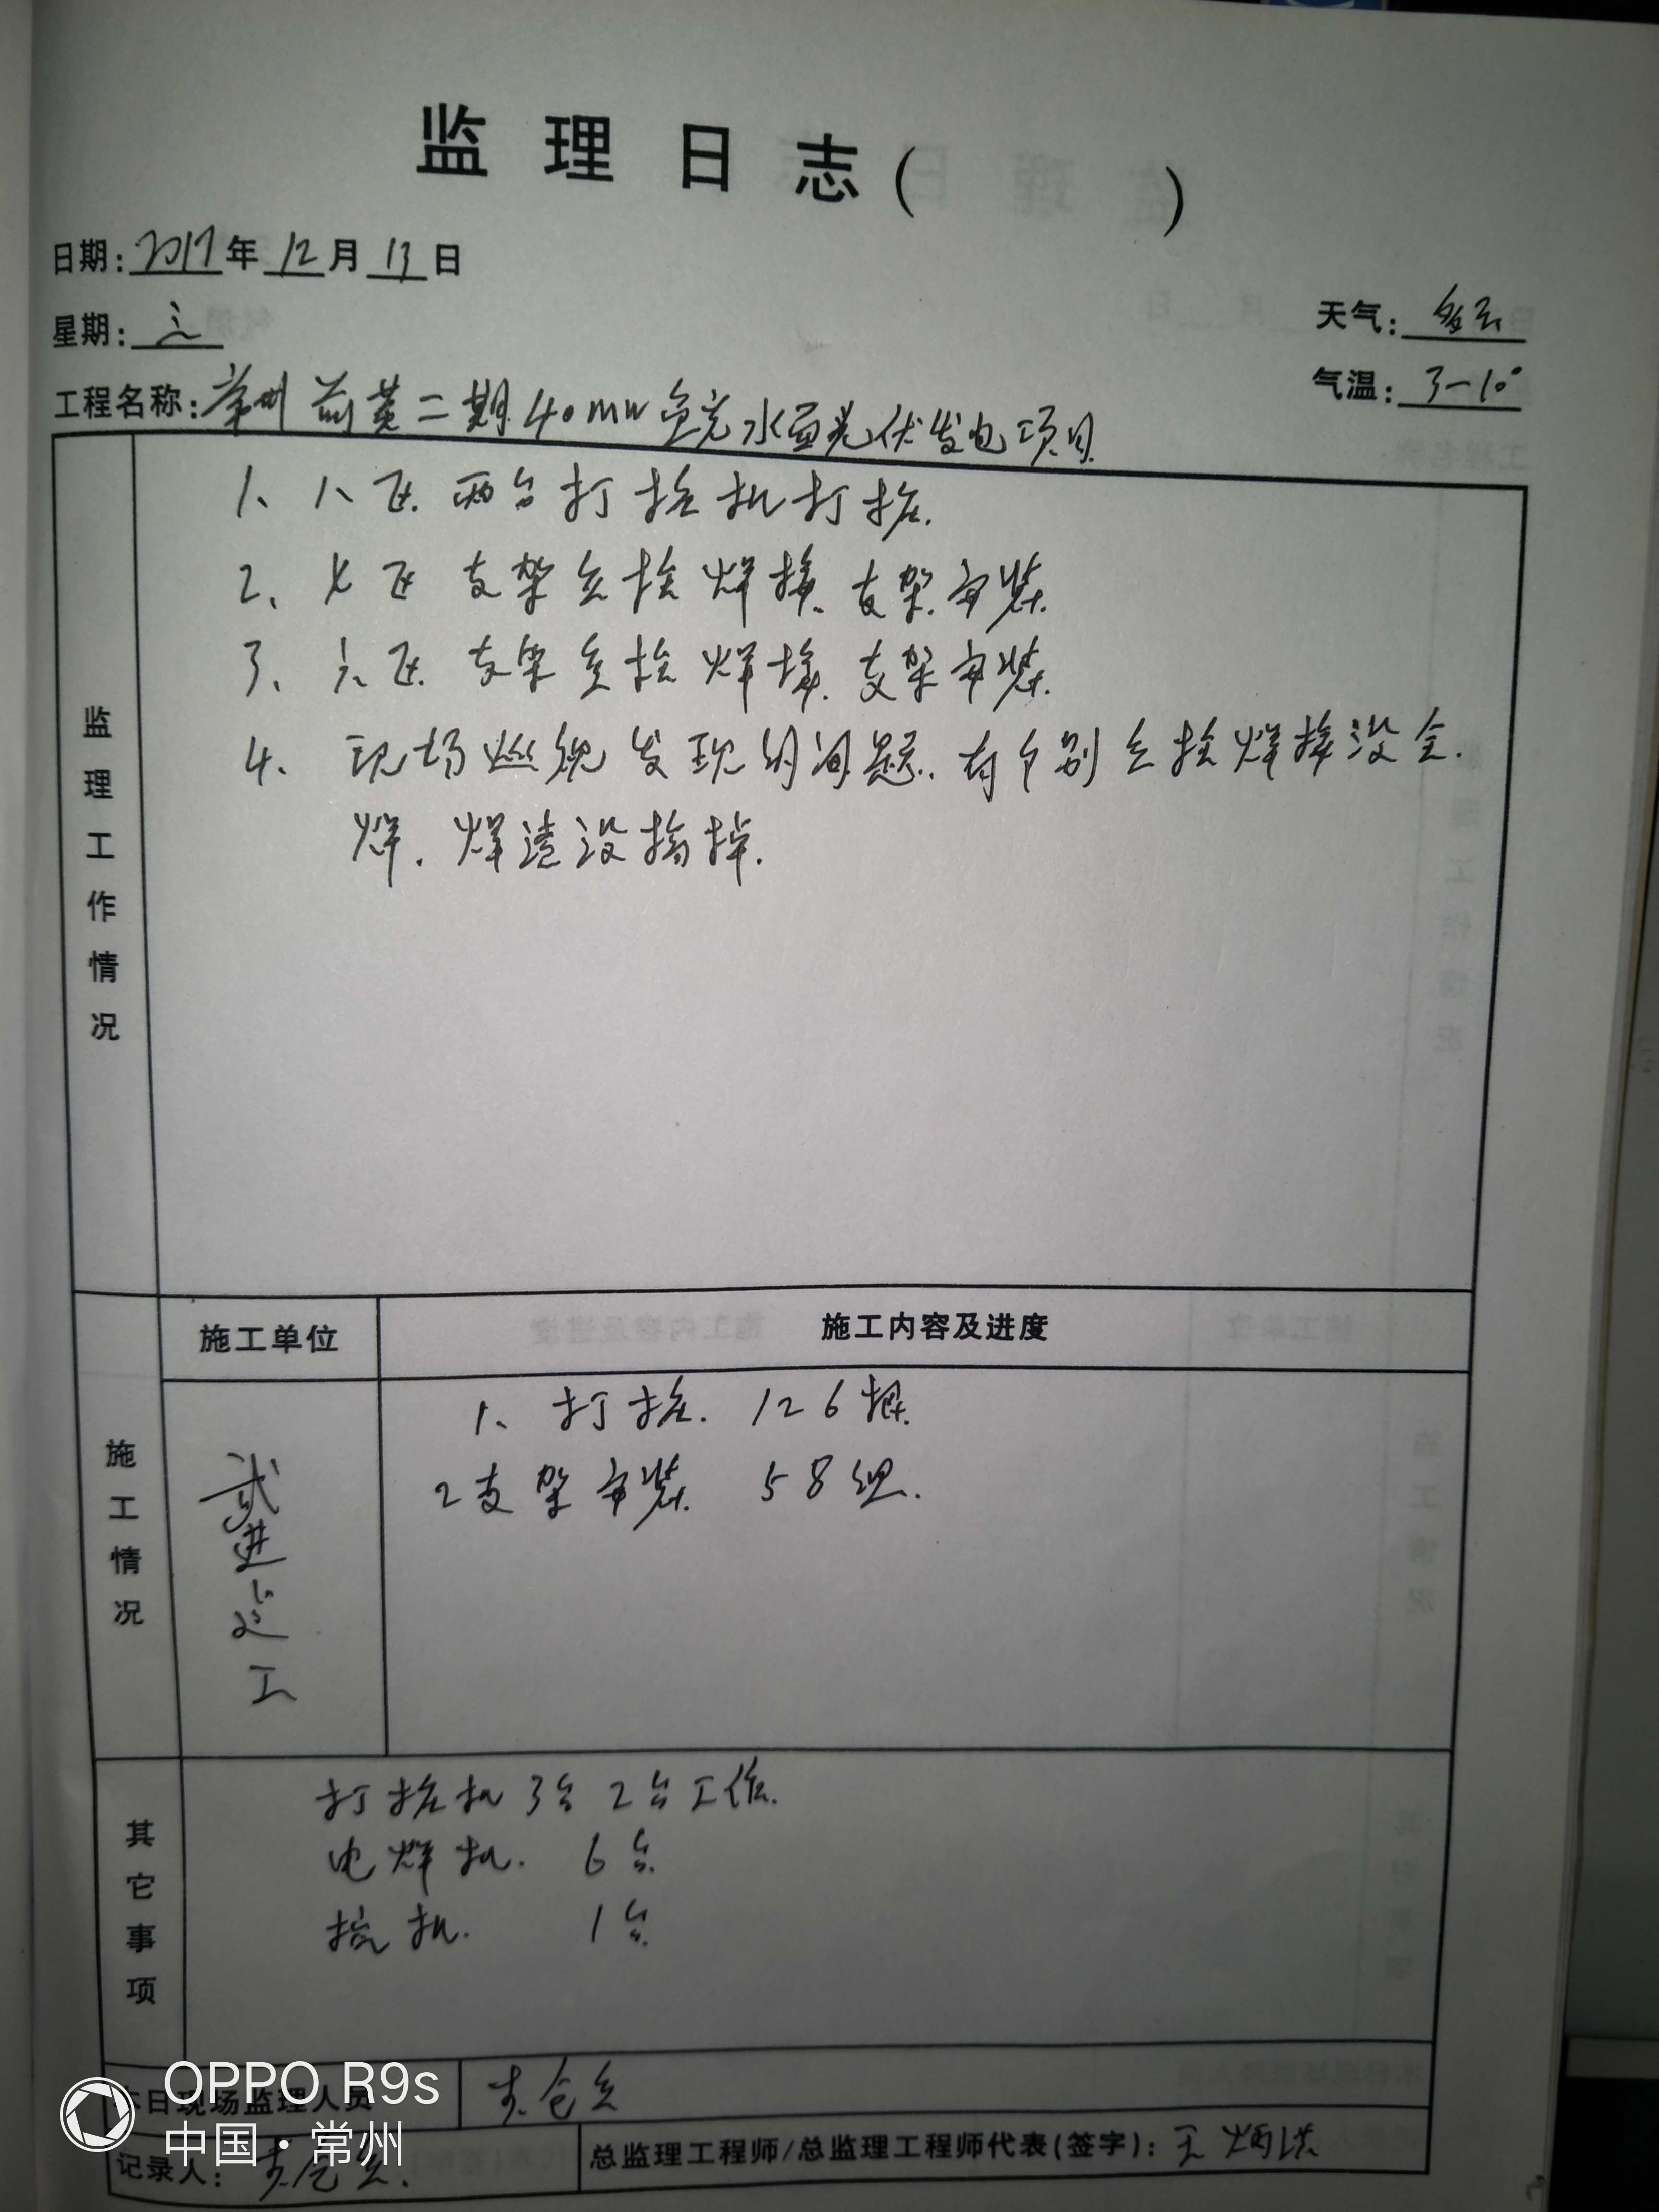 监理日志( )
日期: 2017年12月13日
星期: 三
天气: 多云
气温: 3-10°
工程名称: 常州前黄二期40MW渔光水面光伏发电项目
监理工作情况
1、八区.两台打桩机打桩.
2、七区 支架立柱焊接.支架安装.
3、六区.支架立柱焊接.支架安装.
4、现场巡视发现的问题.有个别立柱焊接没全.
焊.焊渣没搞掉.
施工情况
施工单位
施工内容及进度
武进建工
1、打桩.126根.
2支架安装.58组.
其它事项
打桩机3台2台工作.
电焊机.6台.
挖机.1台.
本日现场监理人员
记录人:
总监理工程师/总监理工程师代表(签字): 王炳洪
OPPO R9s
中国·常州